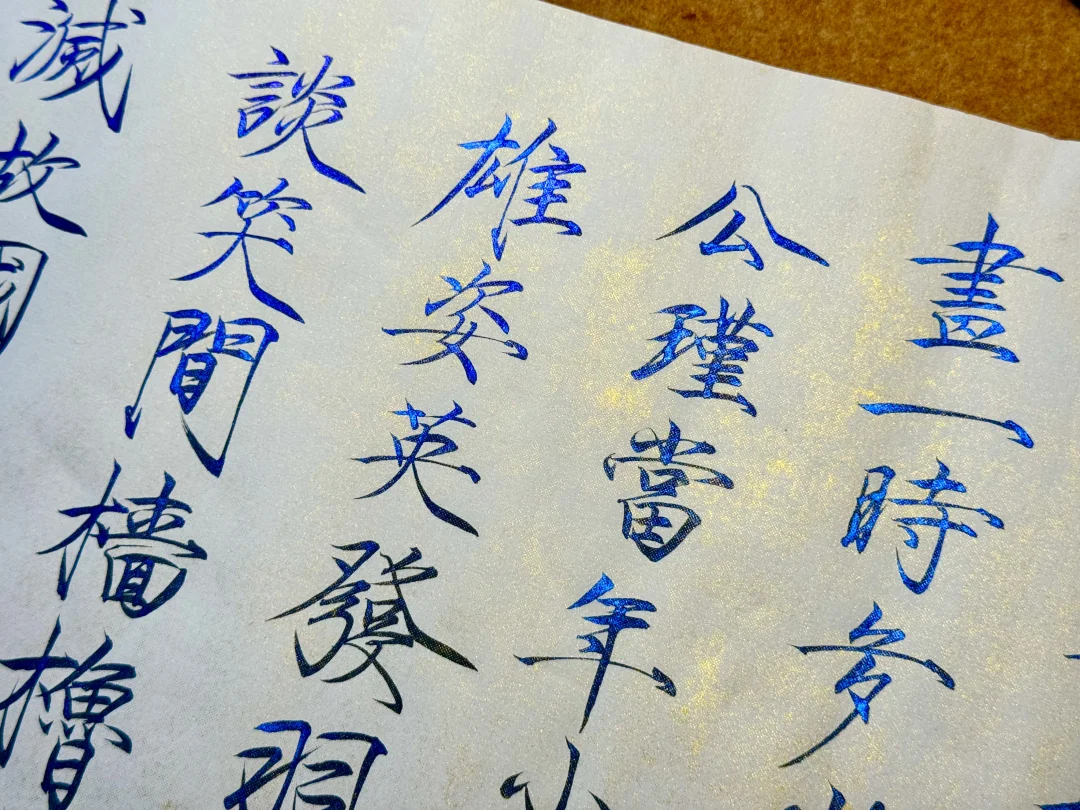 畫一時多
公瑾當年小
雄姿英發羽
談笑間檣櫓
滅故國